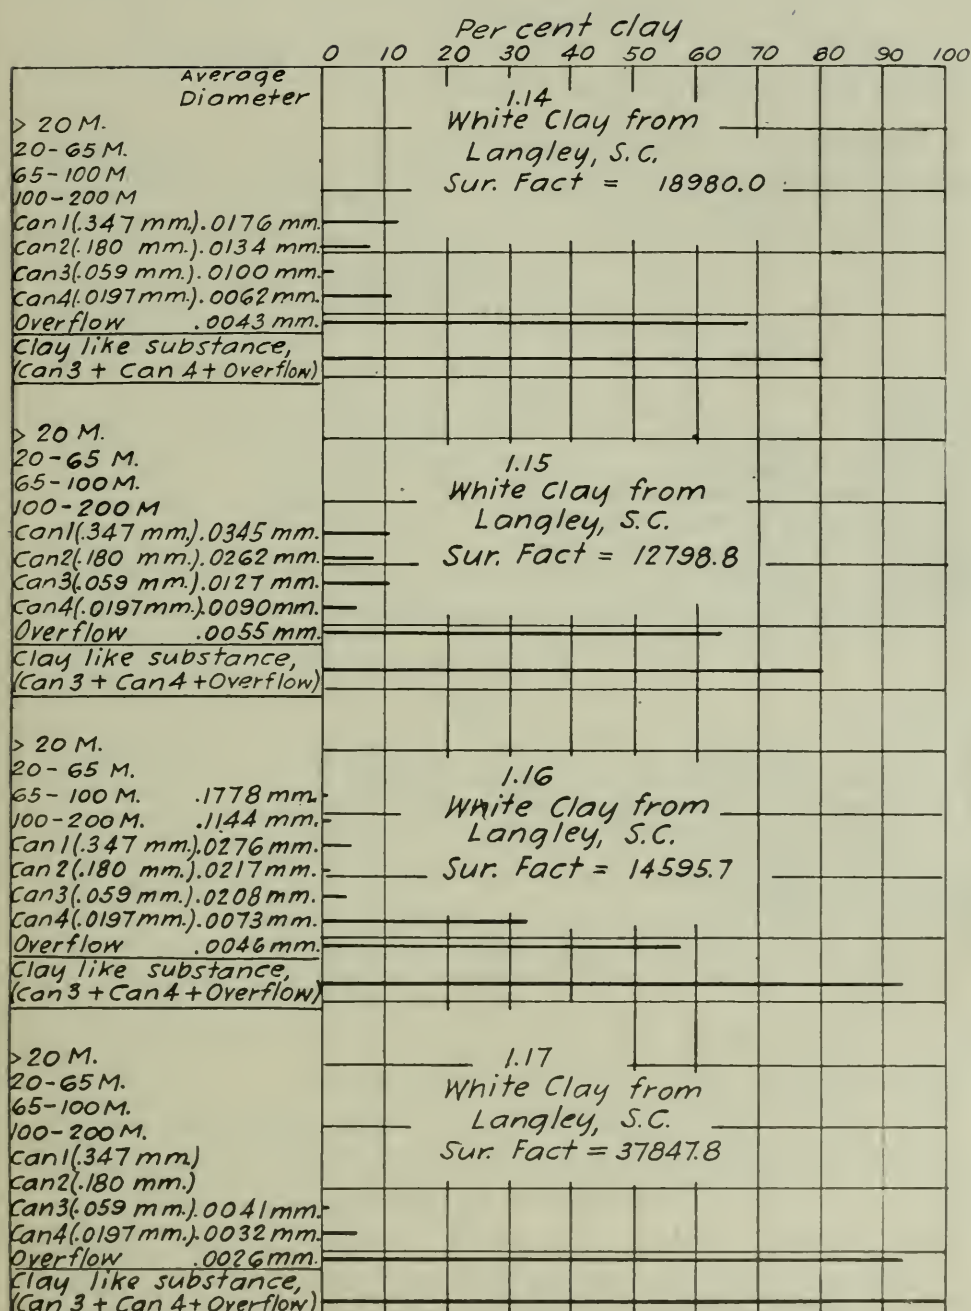 Per cent clay
0 10 20 30 40 50 60 70 80 90 100
Average
Diameter
> 20 M.
20-65 M.
65-100 M
100-200 M
Can 1(.347 mm.).0176 mm.
Can2(.180 mm.).0134 mm.
Can3(.059 mm.).0100 mm.
Can4(.0197mm.).0062mm.
Overflow .0043 mm.
Clay like substance,
(Can 3 + Can 4 + Overflow)
1.14
White Clay from
Langley, S.C.
Sur. Fact = 18980.0
> 20 M.
20-65 M.
65-100M.
100-200 M
Can1(.347 mm.).0345 mm.
Can2(.180 mm.).0262 mm.
Can3(.059 mm.).0127 mm.
Can4(.0197mm.).0090mm.
Overflow .0055 mm.
Clay like substance,
(Can 3 + Can 4 + Overflow)
1.15
White Clay from
Langley, S.C.
Sur. Fact = 12798.8
> 20 M.
20-65 M.
65-100 M. .1778 mm.
100-200 M. .1144 mm.
Can 1(.347 mm.).0276 mm.
Can 2(.180 mm.).0217mm.
Can3(.059 mm.).0208 mm.
Can4(.0197mm.).0073mm.
Overflow .0046mm.
Clay like substance,
(Can 3 + Can 4 + Overflow)
1.16
White Clay from
Langley, S.C.
Sur. Fact = 14595.7
> 20 M.
20-65M.
65-100M.
100-200M.
Can1(.347 mm)
Can2(.180 mm.)
Can3(.059 mm.).0041mm.
Can4(.0197mm.).0032 mm.
Overflow .0026mm.
Clay like substance,
(Can 3 + Can 4 + Overflow)
1.17
White Clay from
Langley, S.C.
Sur. Fact = 37847.8